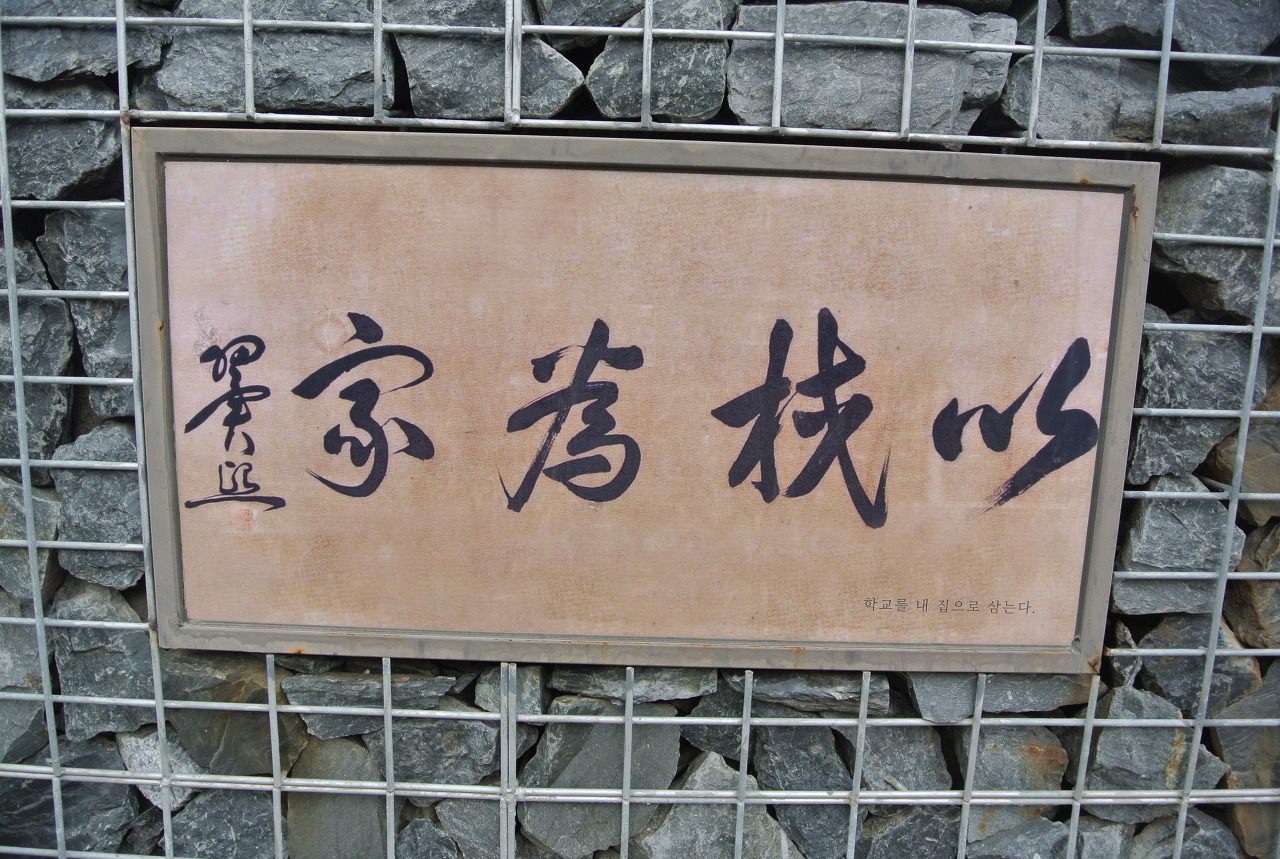 以校為家
翼熙
학교를 내 집으로 삼는다.